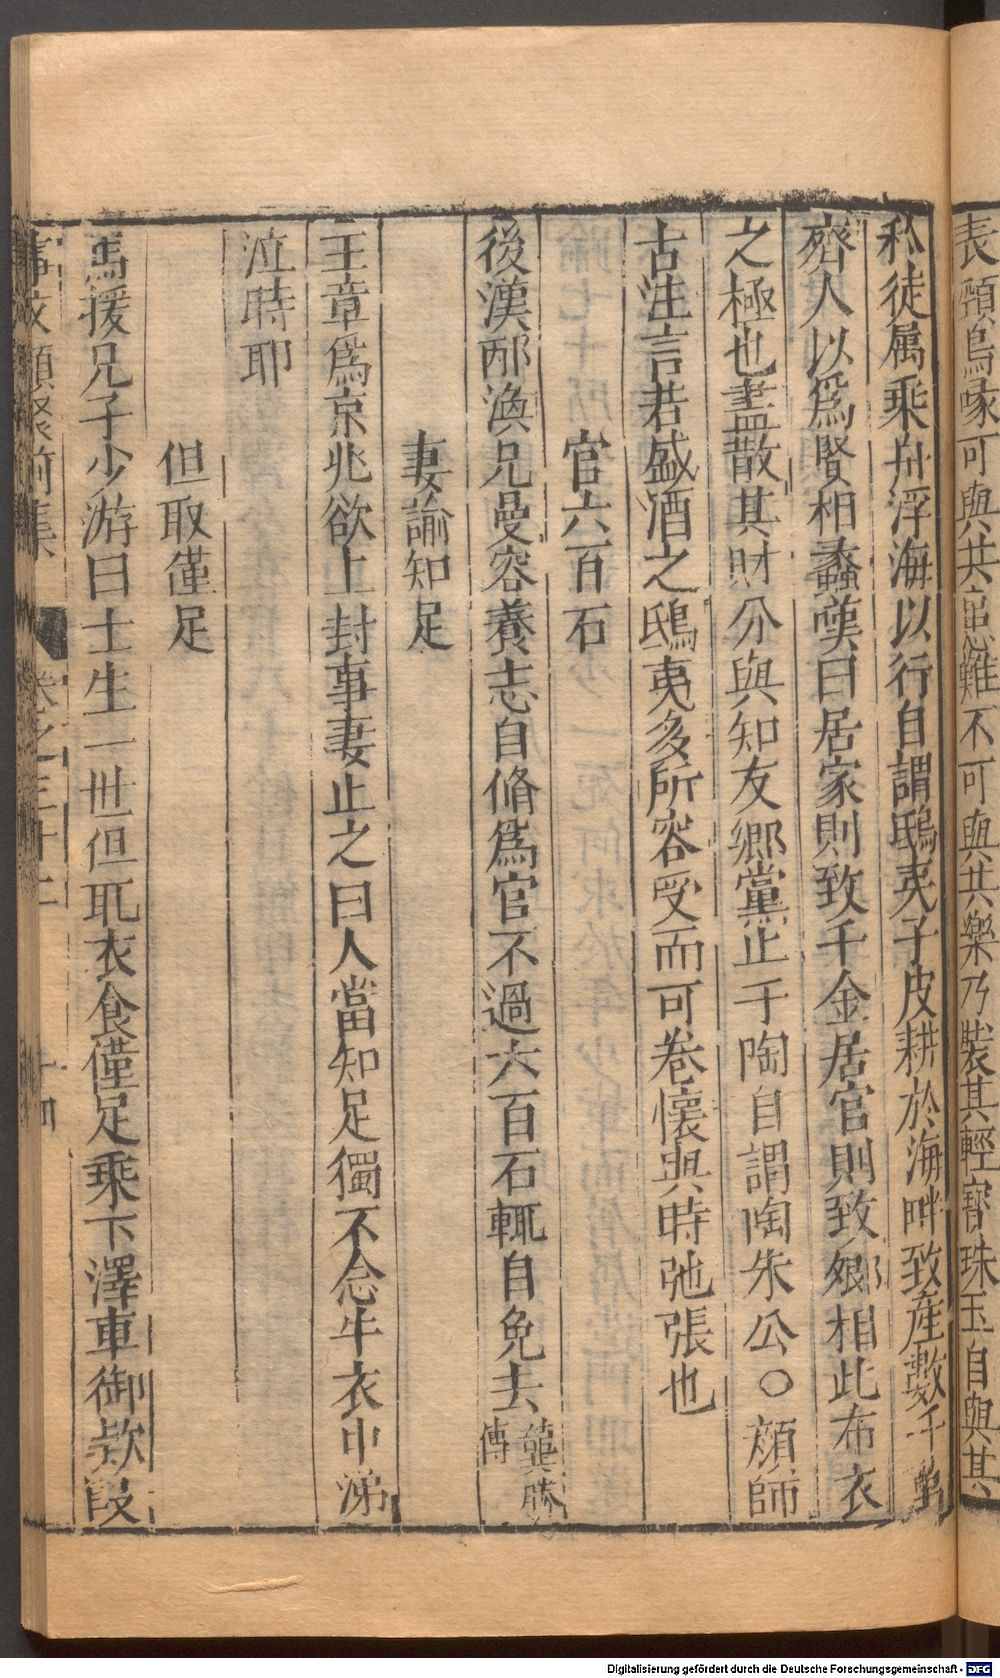 長頸烏喙可與共患難不可與共樂乃裝其輕寶珠玉自與其
私徒属乗舟浮海以行自謂鴟夷子皮耕於海畔致産數千萬
齊人以爲賢相蠡嘆曰居家則致千金居官則致卿相此布衣
之極也盡散其財分與知友鄉黨止于陶自謂陶朱公〇顔師
古注言若盛酒之鴟夷多所容受而可卷懷與時弛張也
官六百石
後漢邴漁兄曼容養志自脩爲官不過六百石輒自免去龔勝
傳
妻諭知足
王章爲京兆欲上封事妻止之曰人當知足獨不念牛衣中涕
泣時耶
但取僅足
馬援兄子少游曰士生一世但取衣食僅足乗下澤車御欵段
事文類聚前集 卷之三十二 十四
Digitalisierung gefördert durch die Deutsche Forschungsgemeinschaft - DFG